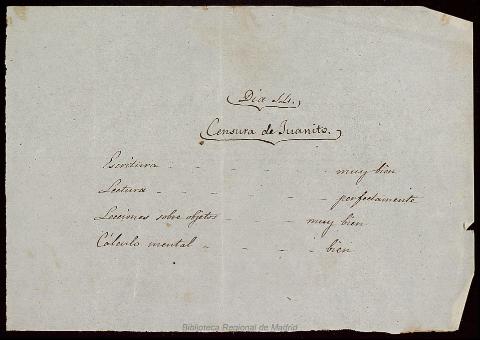 Día
Censura de Juanito.
Escritura - - - - - muy bien
Lectura - - - - - - perfectamente
Lecciones sobre objetos - - - - muy bien
Cálculo mental - - - - - bien
Biblioteca Regional de Madrid